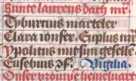 Sunte laurens dach
Tyburcius marteler
Clara ionfer. Euplus m
Ypolitus mit sijn geselsc
Eusebius ꝯf. Vigilia
Onser vrouwe hemeluaert